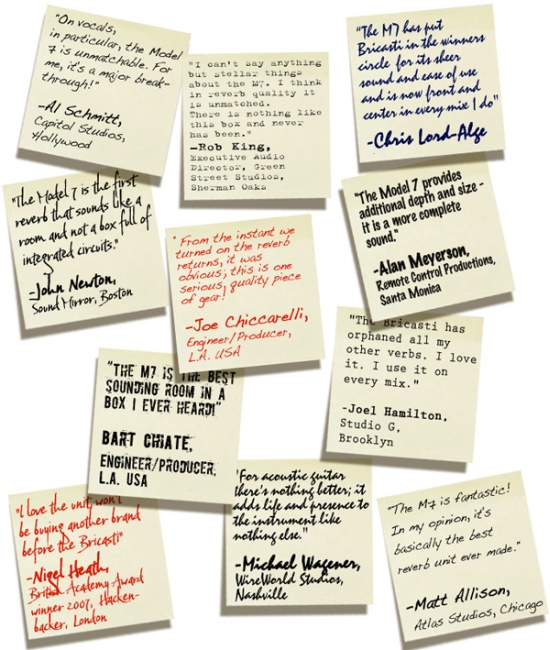 "On vocals,
in particular, the Model
7 is unmatchable. For
me, it's a major break-
through!"
-Al Schmitt,
Capitol Studios,
Hollywood
"I can't say anything
but stellar things
about the M7. I think
in reverb quality it
is unmatched.
There is nothing like
this box and never
has been."
-Rob King,
Executive Audio
Director, Green
Street Studios,
Sherman Oaks
"The M7 has put
Bricasti in the winners
circle for its sheer
sound and ease of use
and is now front and
center in every mix I do"
-Chris Lord-Alge
"The Model 7 is the first
reverb that sounds like a
room and not a box full of
integrated circuits."
-John Newton,
Sound Mirror, Boston
"From the instant we
turned on the reverb
returns, it was
obvious; this is one
serious, quality piece
of gear!
-Joe Chiccarelli,
Engineer/Producer,
L.A. USA
"The Model 7 provides
additional depth and size -
it is a more complete
sound."
-Alan Meyerson,
Remote Control Productions,
Santa Monica
"THE M7 IS THE BEST
SOUNDING ROOM IN A
BOX I EVER HEARD!"
BART CHIATE,
ENGINEER/PRODUCER,
L.A. USA
"The Bricasti has
orphaned all my
other verbs. I love
it. I use it on
every mix."
-Joel Hamilton,
Studio G,
Brooklyn
"I love the unit, won't
be buying another brand
before the Bricasti"
-Nigel Heath,
British Academy Award
winner 2007, Hacken-
backer, London
"For acoustic guitar
there's nothing better; it
adds life and presence to
the instrument like
nothing else."
-Michael Wagener,
WireWorld Studios,
Nashville
"The M7 is fantastic!
In my opinion, it's
basically the best
reverb unit ever made."
-Matt Allison,
Atlas Studios, Chicago